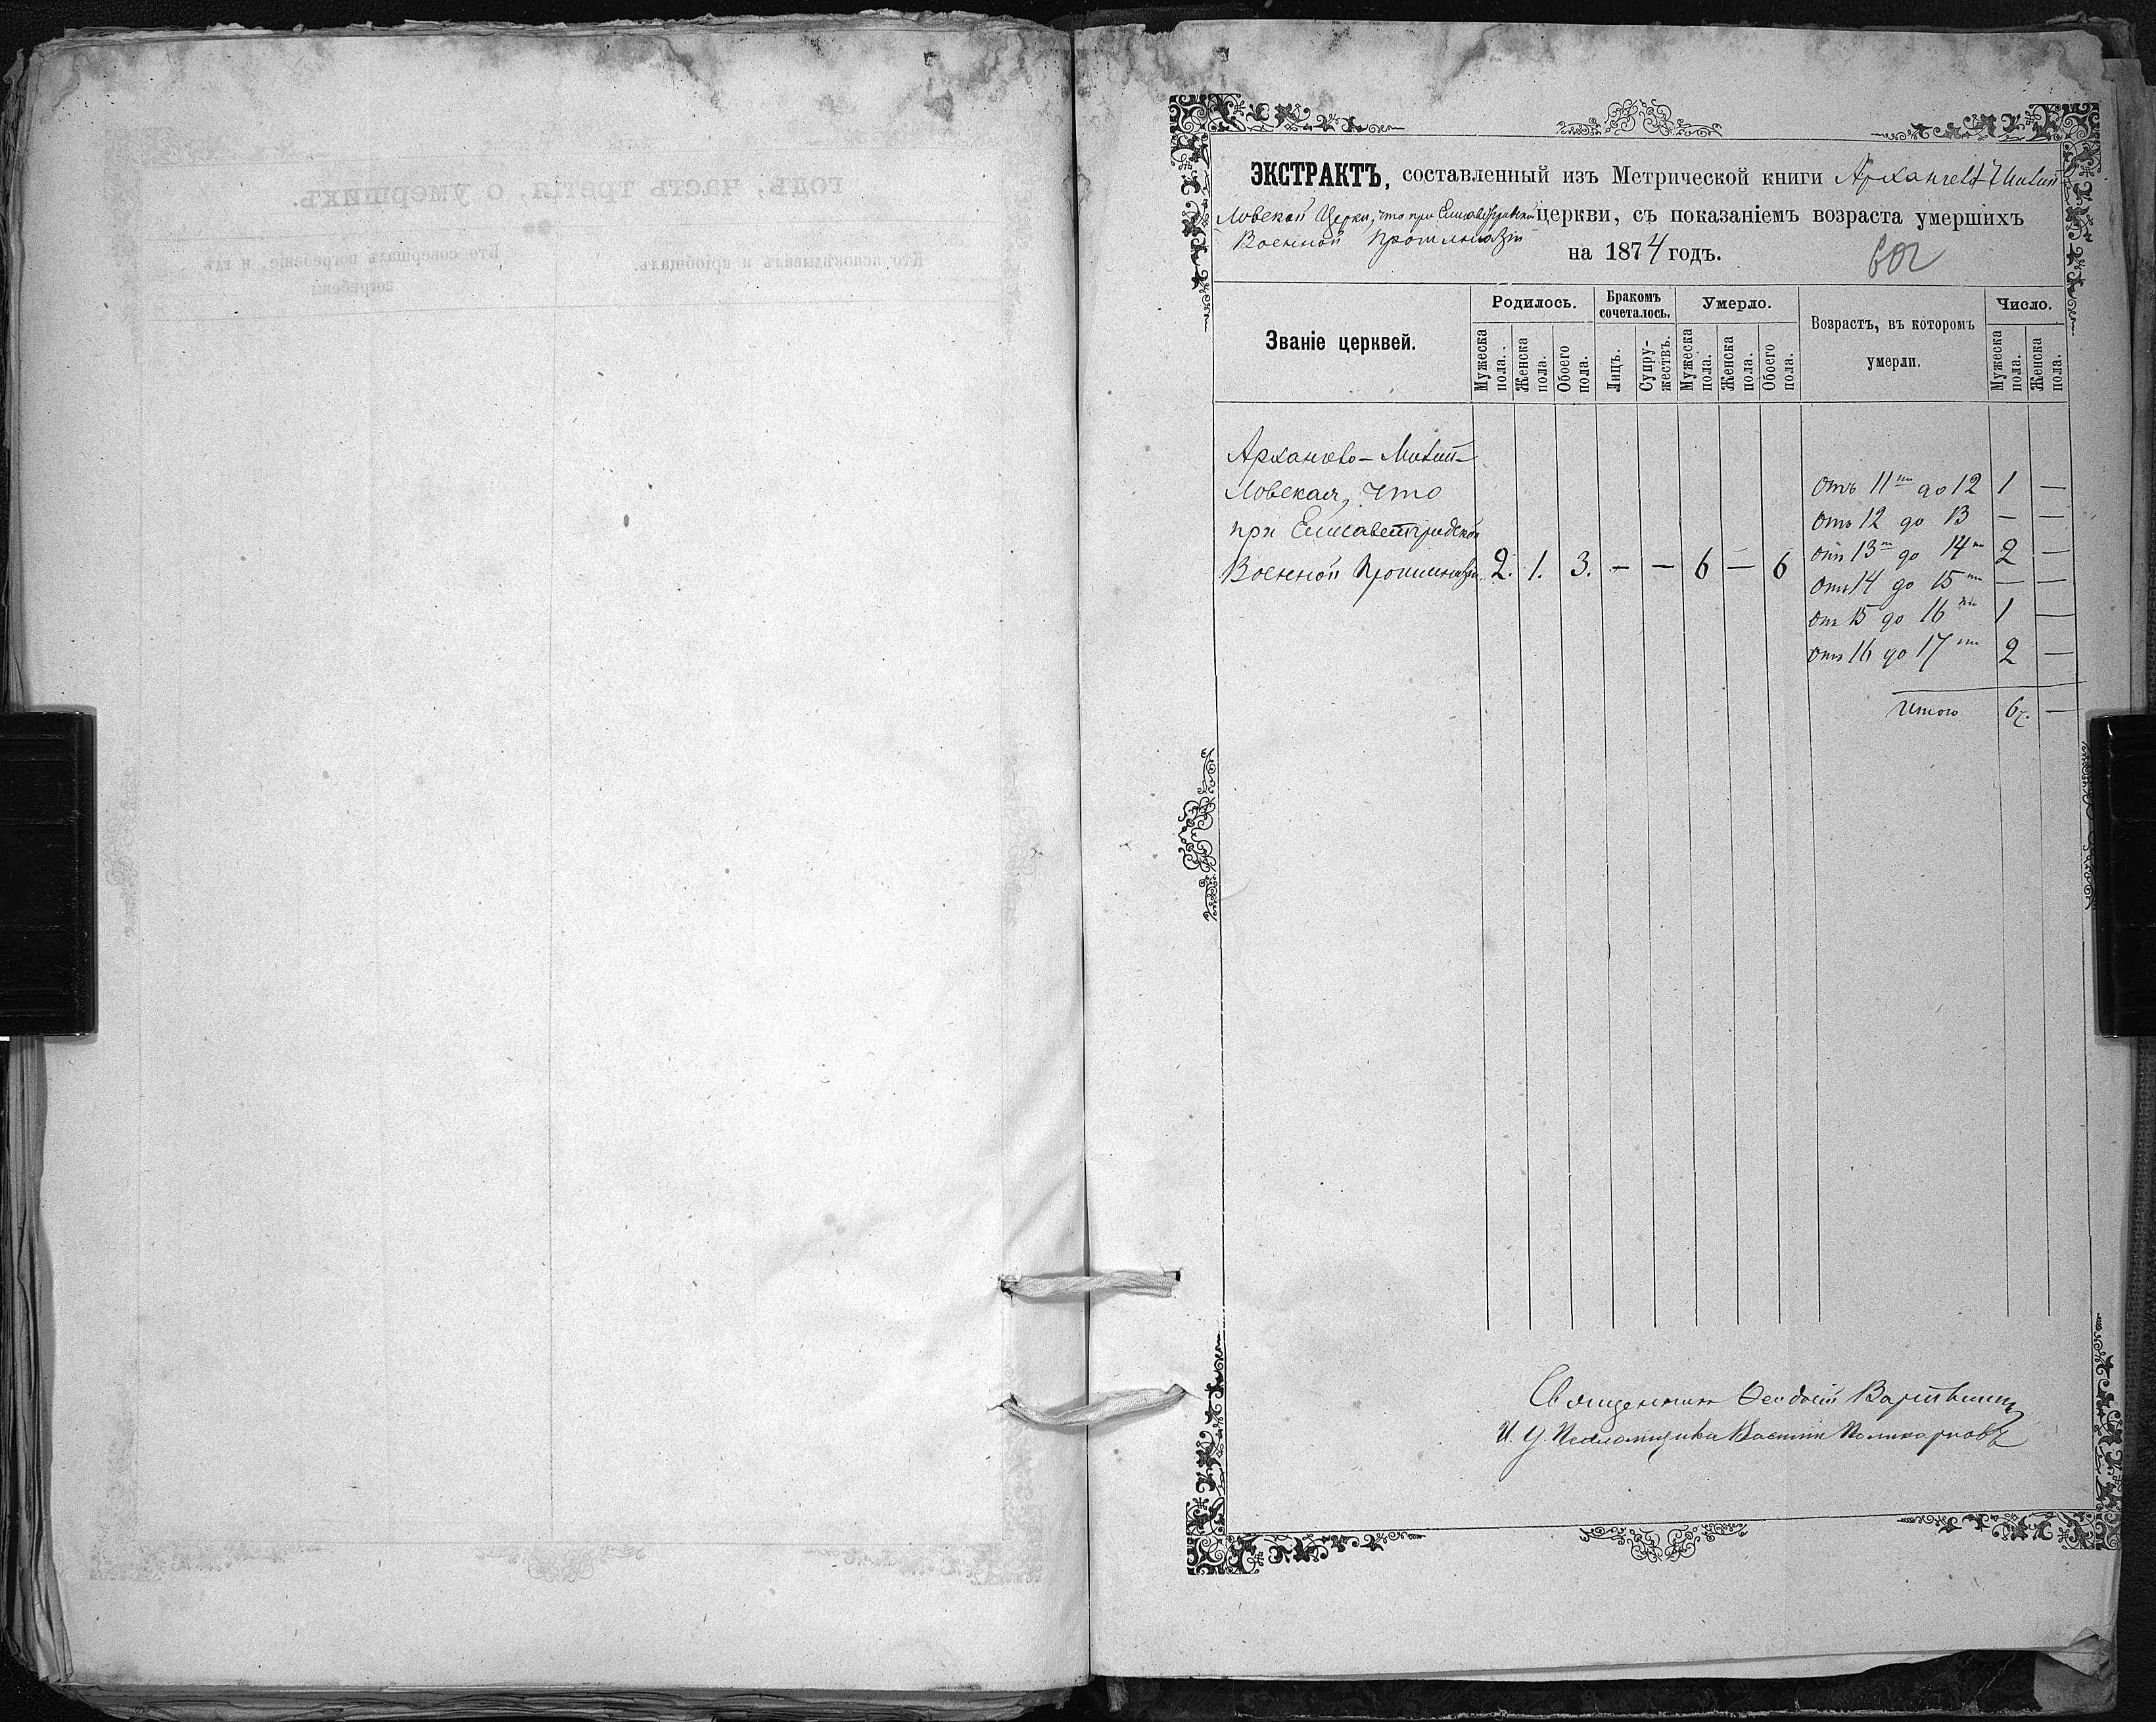 годъ, часть третія, о умершихъ.
Кто исповѣдывалъ и пріобщалъ.
Кто совершалъ погребеніе, и гдѣ
погребены
ЭКСТРАКТЪ, составленный изъ Метрической книги Архангело-Михай
ловской Церкви, что при Елисаветградской церкви, съ показаніемъ возраста умершихъ
Военной Прогимназіи
на 1874 годъ.
602
Званіе церквей.
Родилось.
Мужеска пола.
Женска пола.
Обоего пола.
Бракомъ сочеталось.
Лицъ.
Супружествъ.
Умерло.
Мужеска пола.
Женска пола.
Обоего пола.
Возрастъ, въ которомъ
умерли.
Число.
Мужеска пола.
Женска пола.
Архангело-Михай-
ловская, что
при Елисаветградской
Военной Прогимназіи 2. 1. 3. — — 6 — 6
Отъ 11ти до 12 1 —
Отъ 12 до 13 — —
Отъ 13ти до 14ти 2 —
Отъ 14 до 15ти — —
Отъ 15 до 16ти 1 —
Отъ 16 до 17ти 2 —
Итого 6 —
Священникъ Ѳеодосій
И. д. Псаломщика Поликарповъ